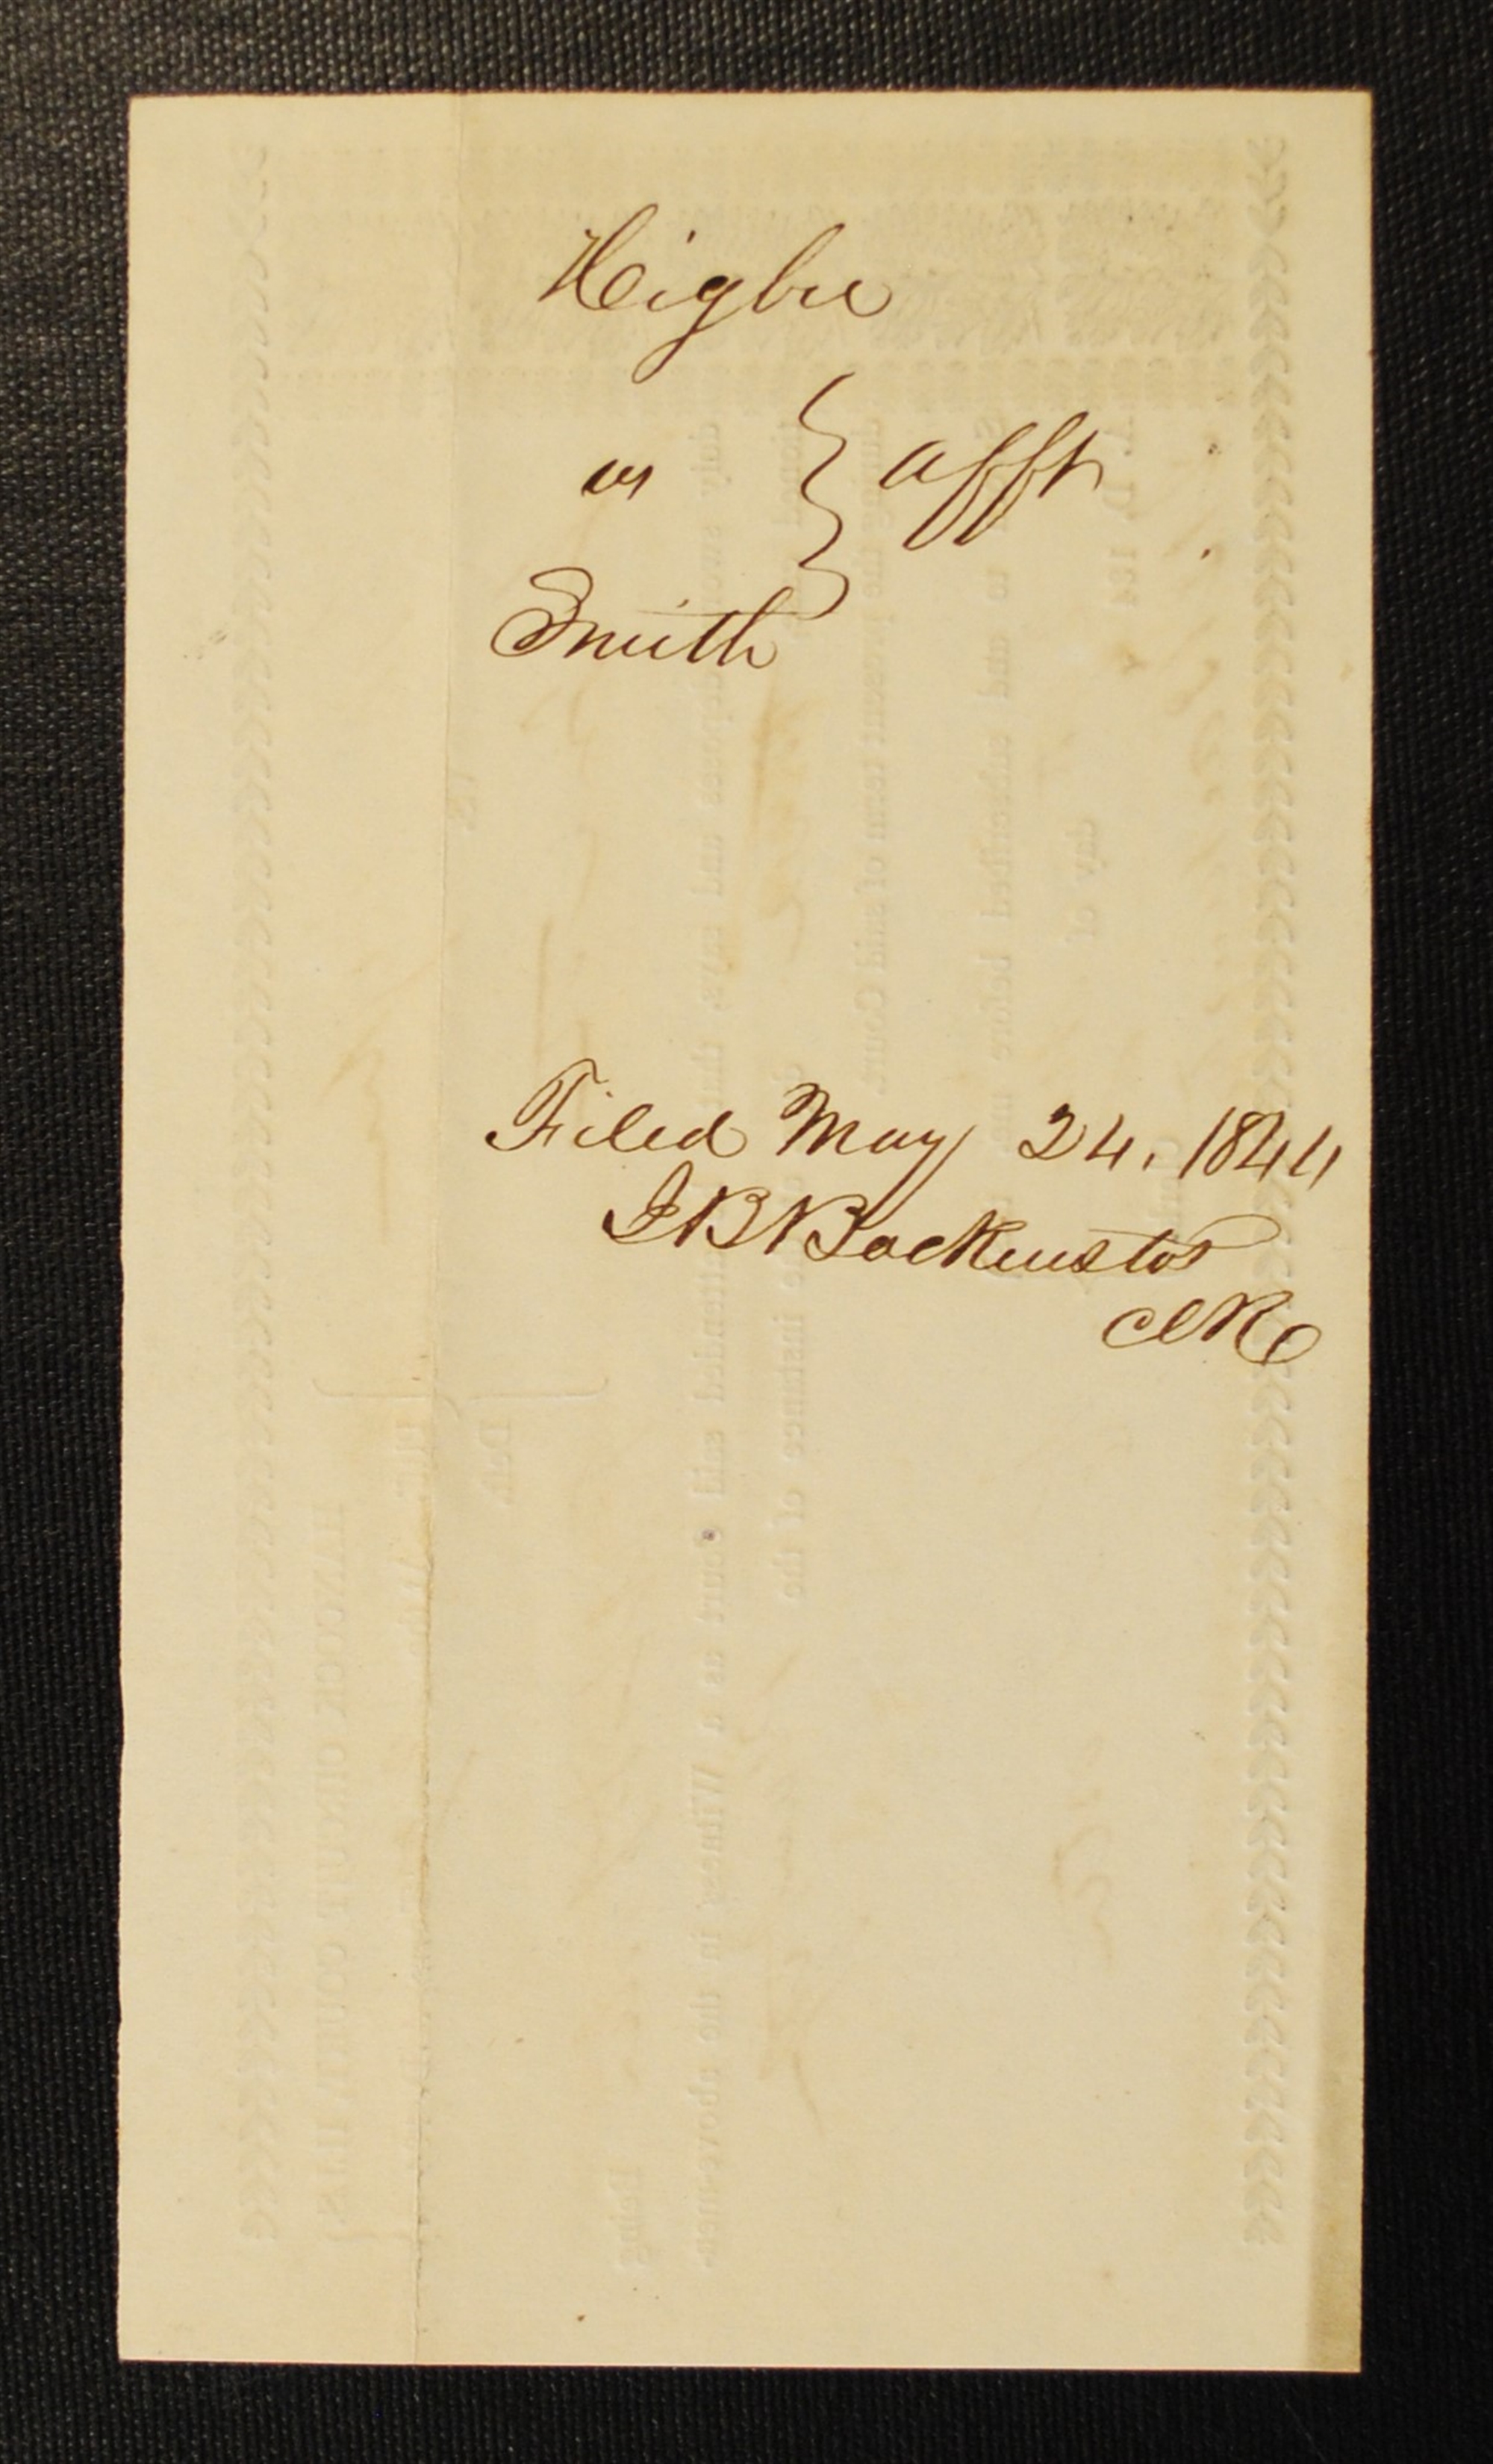 Higbee
vs } afft
Smith
Filed May 24, 1844
J B Backenstos
clk